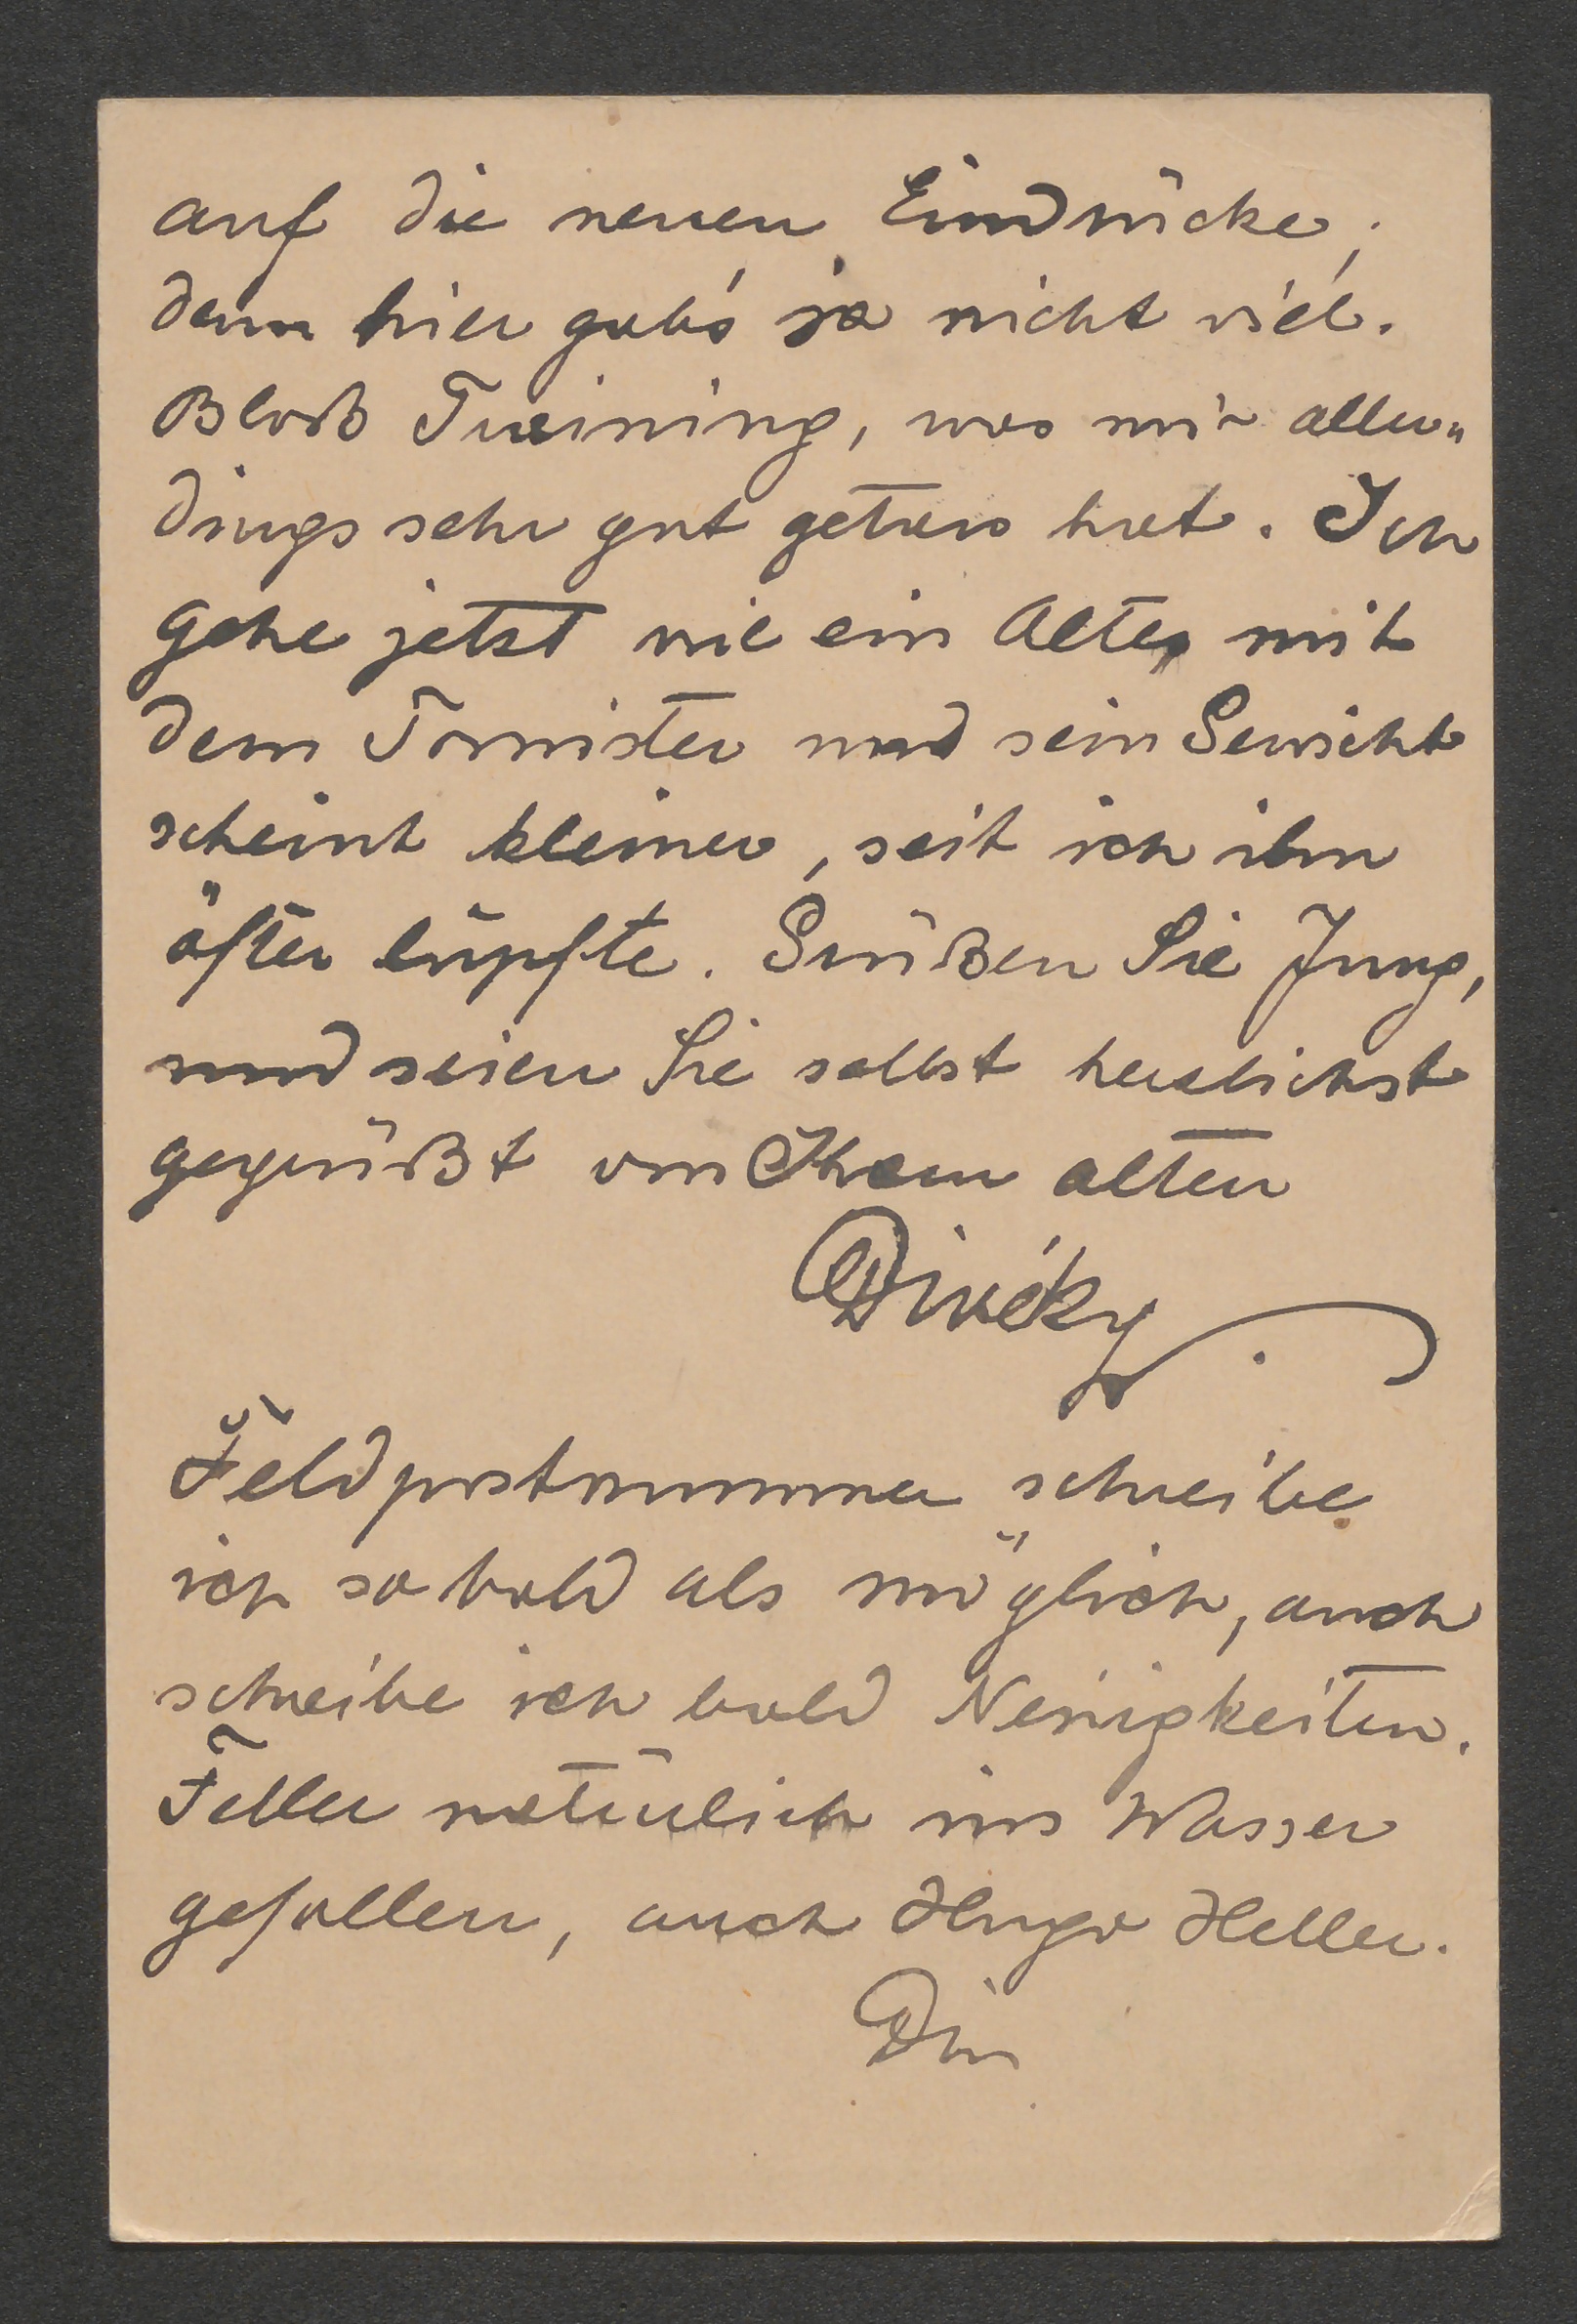 auf die neuen Eindrücke;
denn hier gab's ja nicht viel.
Bloß Training, was mir aller„
dings sehr gut getan hat. Ich
gehe jetzt wie ein Alter mit
dem Tornister und sein Gewicht
scheint kleiner, seit ich ihn
öfter lüpfte. Grüßen Sie Jung,
und seien Sie selbst herzlichst
gegrüßt von Ihrem alten
Divéky.
Feldpostnummer schreibe
ich so bald als möglich, auch
schreibe ich bald Neuigkeiten.
Feller natürlich ins Wasser
gefallen, auch Hugo Heller.
Div